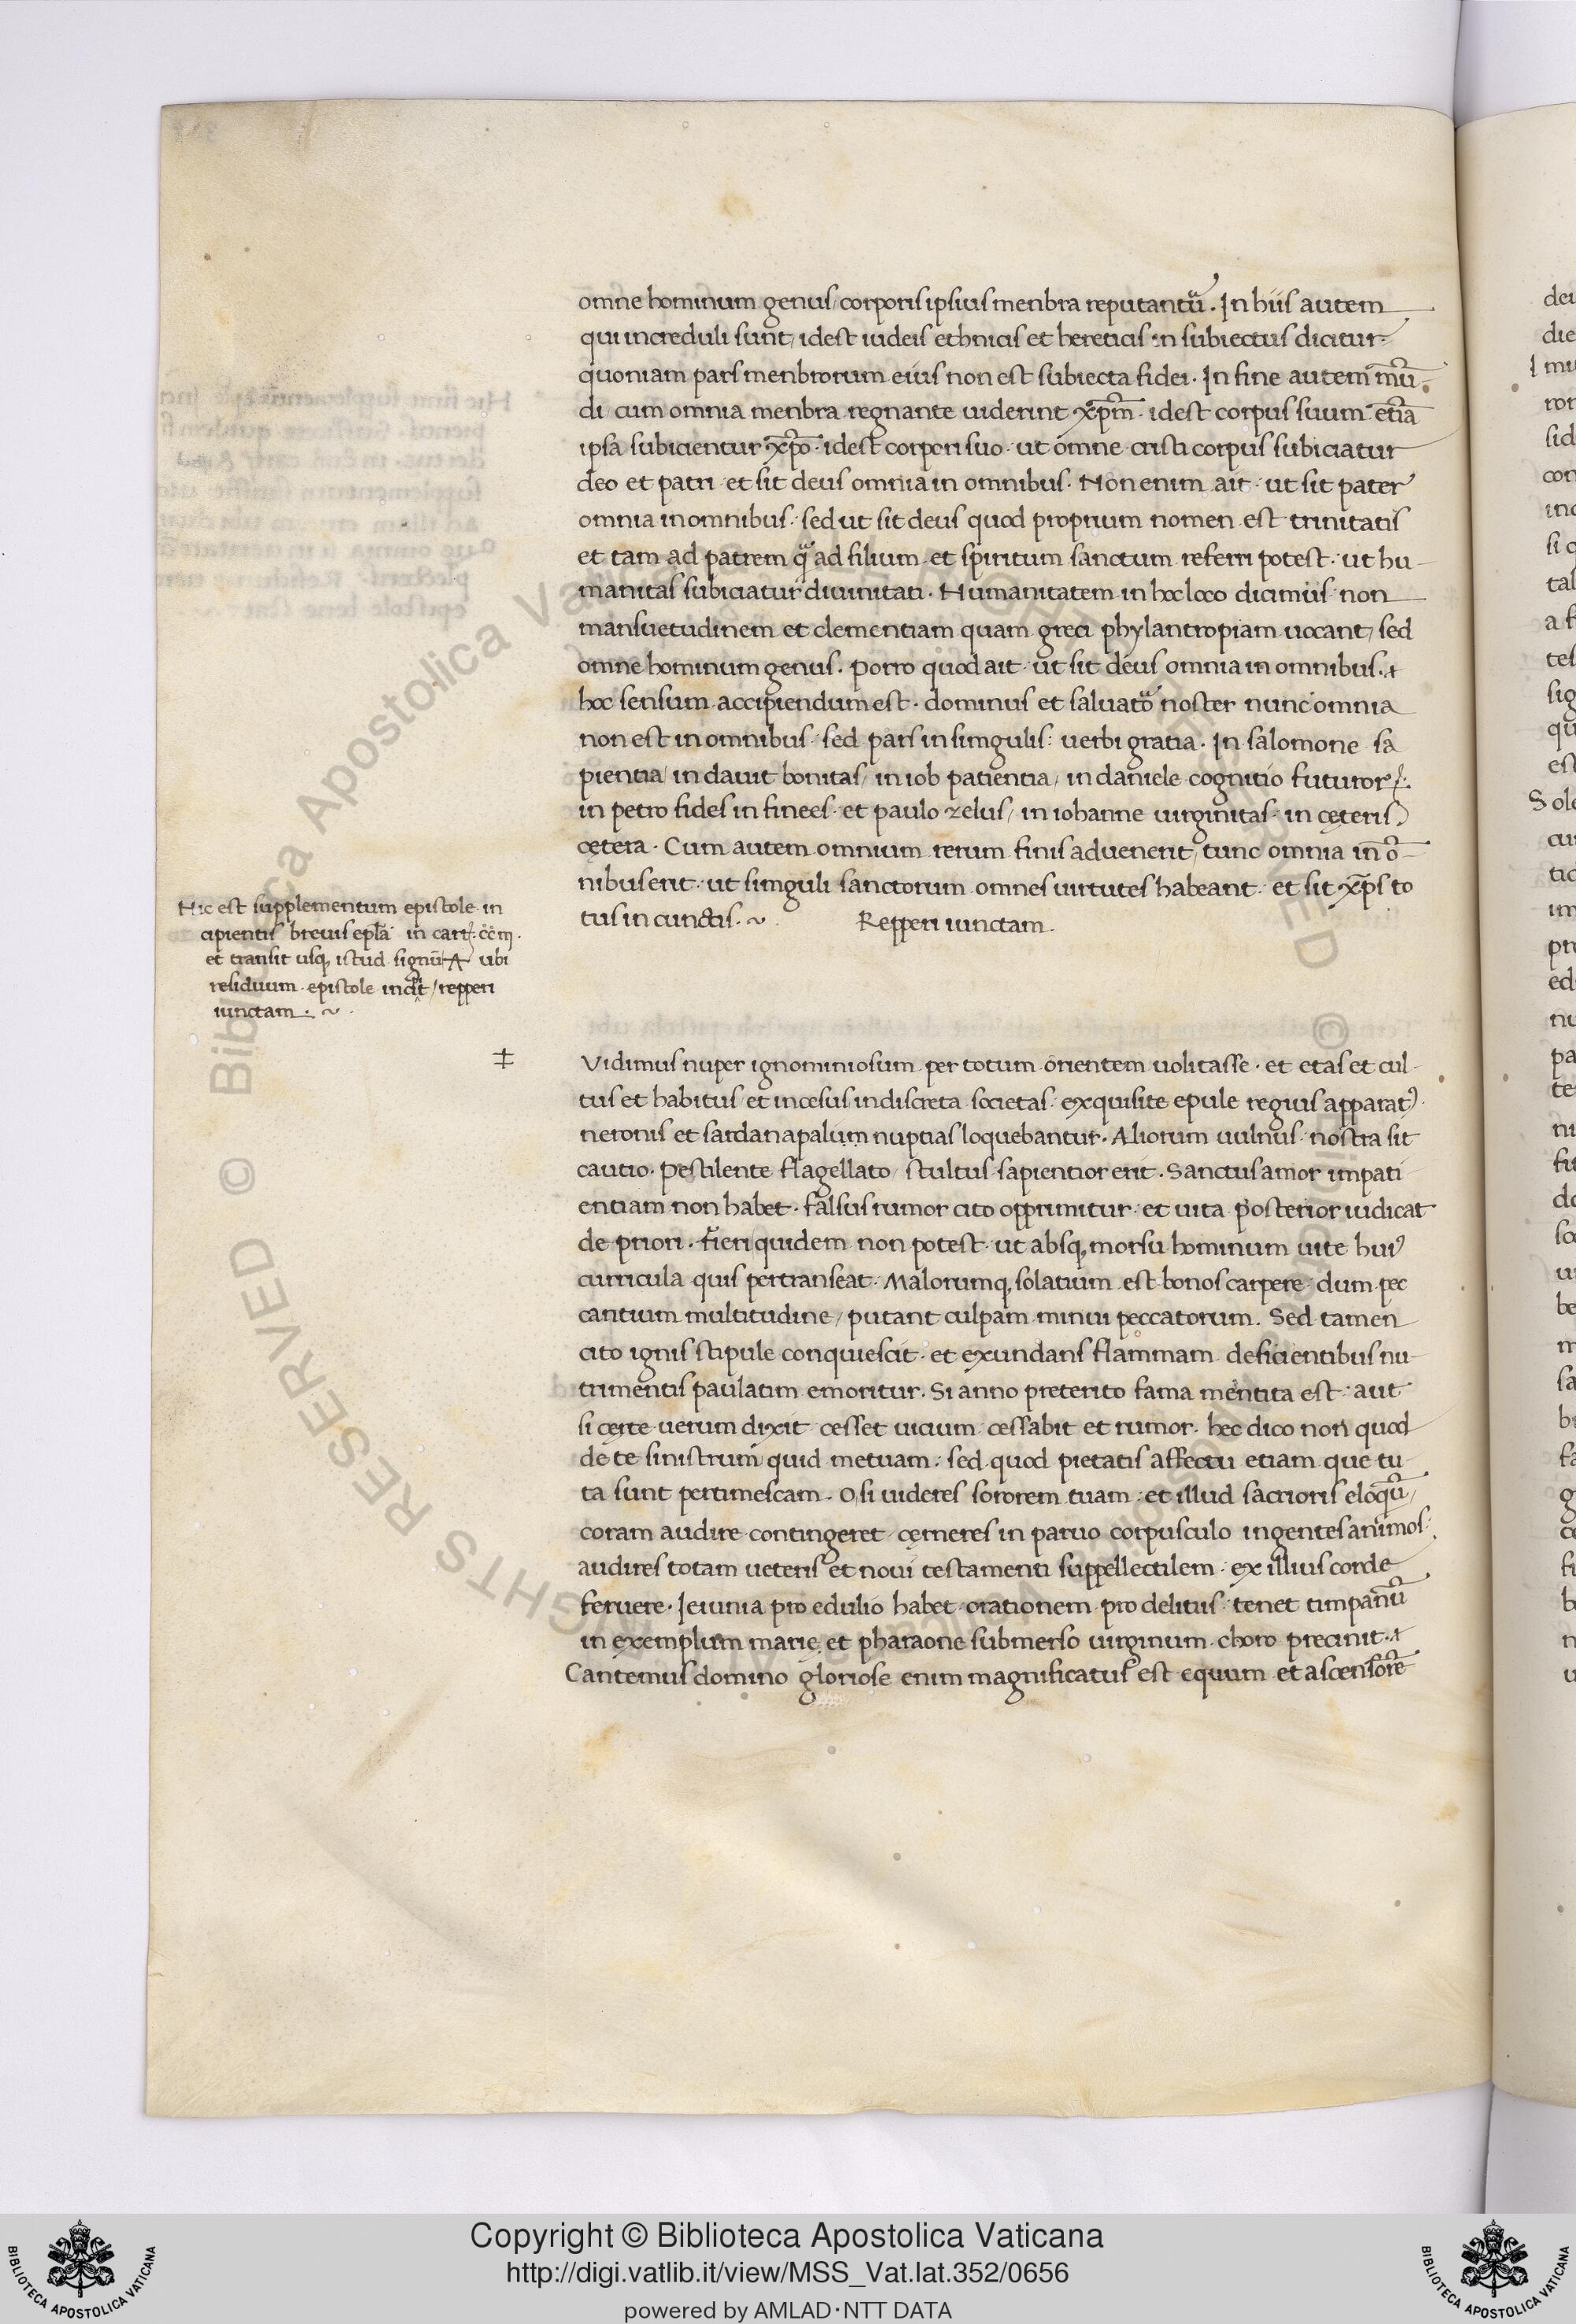 omne hominum genus / corporis ipsius menbra reputantur̄. In hiis autem
qui increduli sunt / idest iudeis ethnicis et hereticis in subiectus dicitur
quoniam pars menbrorum eius non est subiecta fidei. In fine autem mū
di cum omnia menbra regnante uiderint xp̄m idest corpus suum etiā
ipsa subicientur xp̄o idest corpori suo ut omne cristi corpus subiciatur
deo et patri et sit deus omnia in omnibus. Non enim ait ut sit pater
omnia in omnibus: sed ut sit deus quod proprium nomen est trinitatis
et tam ad patrem q̄ ad filium et spiritum sanctum referri potest. ut hu-
manitas subiciatur diuinitati. Humanitatem in hoc loco dicimus non
mansuetudinem et clementiam quam greci phylantropiam uocant / sed
omne hominum genus. Porro quod ait ut sit deus omnia in omnibus.
hoc sensum accipiendum est. dominus et saluator noster nunc omnia
non est in omnibus sed pars in simgulis: uerbi gratia. In salomone sa
pientia / in dauit bonitas / in iob patientia / in daniele cognitio futuroꝝ.
in petro fides in finees et paulo zelus / in iohanne uirginitas in cęteris
cętera. Cum autem omnium rerum finis aduenerit / tunc omnia in o̅-
nibus erit: ut simguli sanctorum omnes uirtutes habeant. et sit xp̄s to
tus in cunctis. ~ Repperi iunctam.
Hic est supplementum epistole in
cipientis breuis epl̄a in cart. cc̄m.
et transit usq; istud signū A ubi
residuum epistole / repperi
iunctam. ~
‡ Vidimus nuper ignominiosum per totum orientem uolitasse. et etas et cul-
tus et habitus et incesus indiscreta societas: exquisite epule regiis apparatꝰ
neronis et sardanapalum nuptias loquebantur. Aliorum uulnus nostra sit
cautio. Pestilente flagellato / stultus sapientior erit. Sanctus amor impati
entiam non habet. falsus rumor cito opprimitur et uita posterior iudicat
de priori. fieri quidem non potest ut absq; morsu hominum uite huiꝰ
curricula quis pertranseat. Malorumq; solatium est bonos carpere dum pec
cantium multitudine / putant culpam minui peccatorum. Sed tamen
cito ignis stipule conquiescit. et exundans flammam deficientibus nu-
trimentis paulatim emoritur. Si anno preterito fama mentita est: aut
si certe uerum dixit cesset uicium cessabit et rumor. hec dico non quod
de te sinistrum quid metuam: sed quod pietatis affectu etiam que tu-
ta sunt pertimescam. O si uideres sororem tuam et illud sacrioris eloquiū /
coram audire contingeret cęrneres in paruo corpusculo ingentes animos
audires totam ueteris et noui testamenti suppellectilem ex illius corde
feruere. Ieiunia pro edulio habet orationem pro delitiis tenet timpanū
in exemplum marie et pharaone submerso uirginum choro precinit.
Cantemus domino gloriose enim magnificatus est equum et ascensorē
Copyright © Biblioteca Apostolica Vaticana
http://digi.vatlib.it/view/MSS_Vat.lat.352/0656
powered by AMLAD·NTT DATA